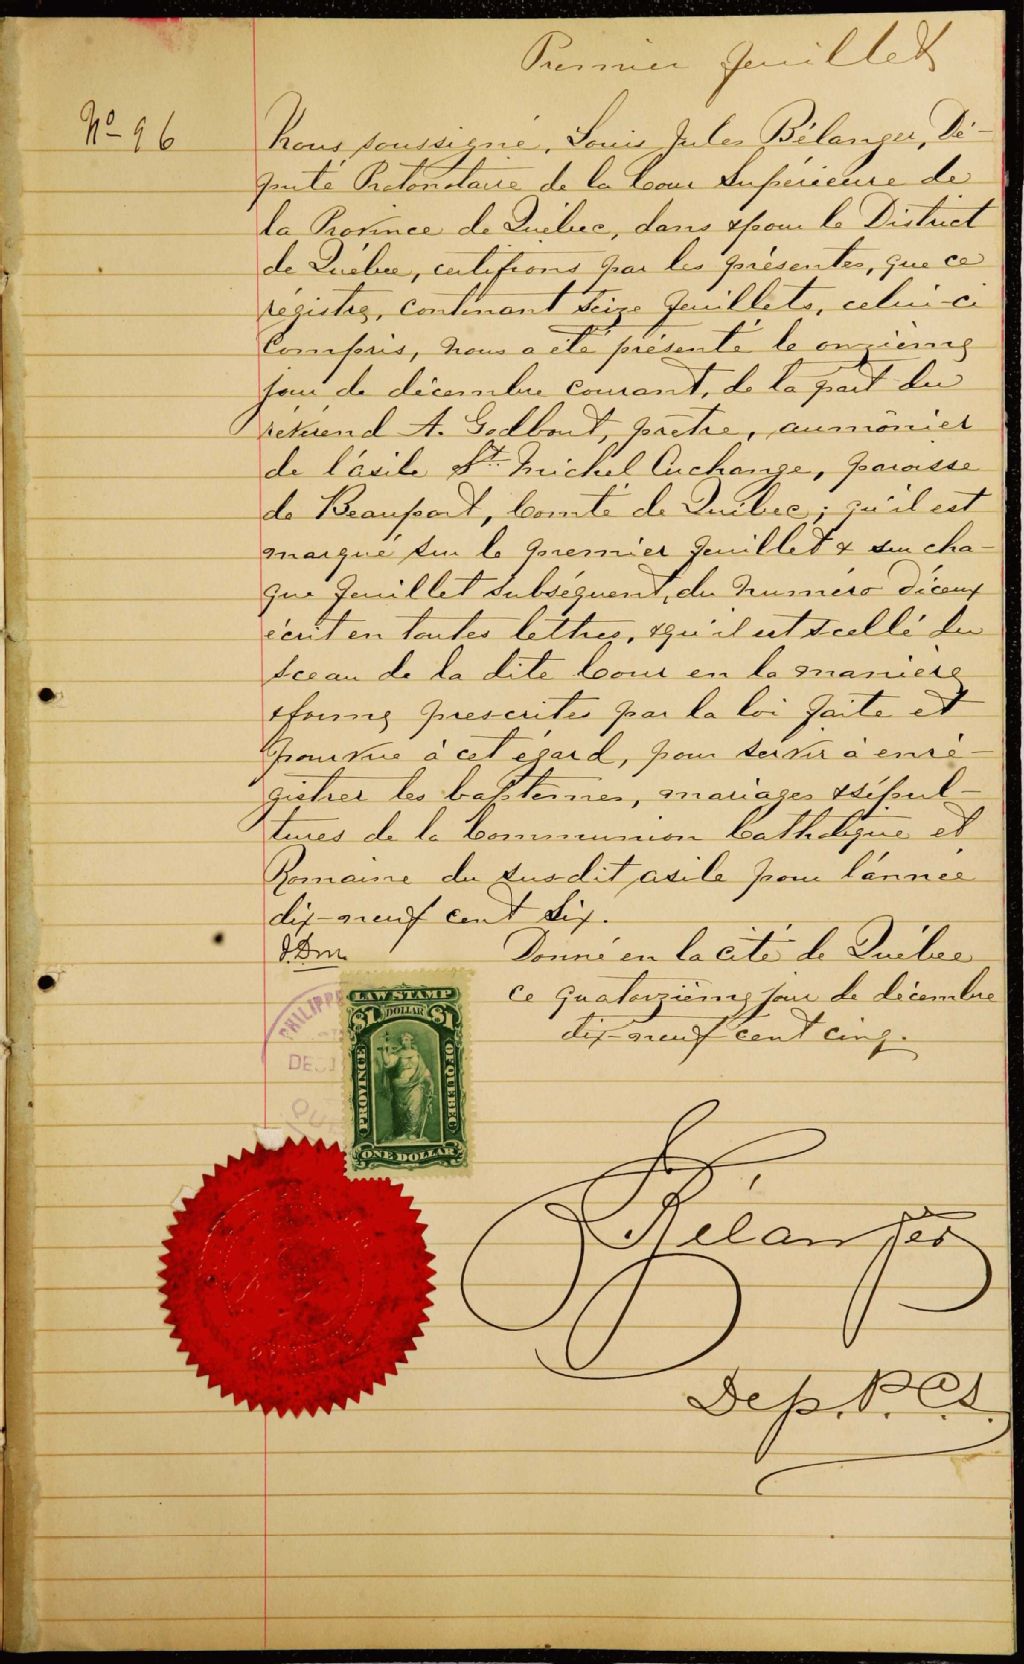 Premier feuillet
No 96
Nous soussigné, Louis Jules Bélanger, Dé-
puté Protonotaire de la Cour Supérieure de
la Province de Québec, dans & pour le District
de Québec, certifions par les présentes, que ce
régistre, contenant seize feuillets, celui-ci
compris, nous a été présenté le onzième
jour de décembre courant, de la part du
révérend A. Godbout, prêtre, aumônier
de l'asile St. Michel Archange, paroisse
de Beauport, Comté de Québec; qu'il est
marqué sur le premier feuillet & sur cha-
que feuillet subséquent, du numéro d'iceux
écrit en toutes lettres, & qu'il est scellé du
sceau de la dite Cour en la manière
& forme prescrites par la loi faite et
pourvue à cet égard, pour servir à enré-
gistrer les baptemes, mariages & sépul-
tures de la Communion Catholique et
Romaine du susdit asile pour l'année
dix-neuf cent six.
Donné en la cité de Québec
ce quatorzième jour de décembre
dix-neuf cent cinq.
PHILIPPE
DEC
QUE
LAW STAMP
$1 DOLLAR $1
PROVINCE OF QUEBEC
ONE DOLLAR
Bélanger
Dep. P. C. S.